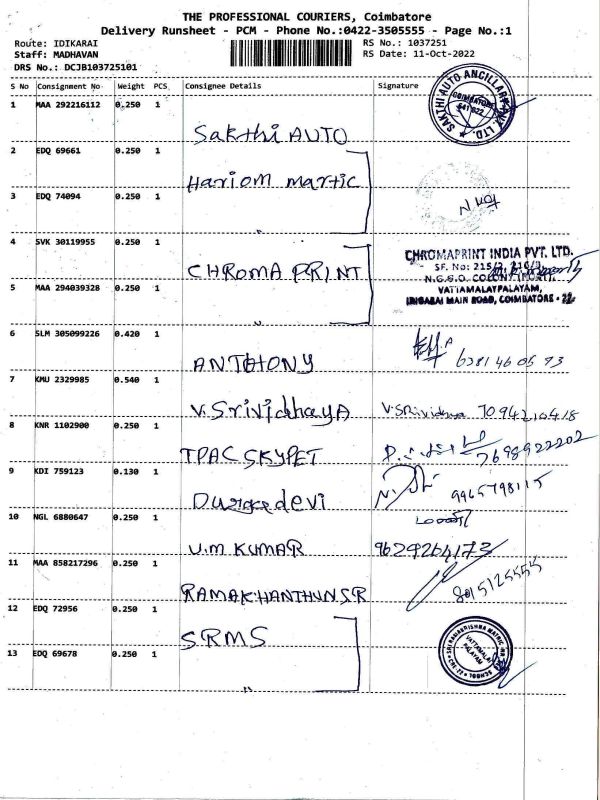 THE PROFESSIONAL COURIERS, Coimbatore
Delivery Runsheet - PCM - Phone No.:0422-3505555 - Page No.:1
Route: IDIKARAI RS No.: 1037251
Staff: MADHAVAN RS Date: 11-Oct-2022
DRS No.: DCJB103725101
S No Consignment No Weight PCS Consignee Details Signature
1 MAA 292216112 0.250 1
SAKTHI AUTO ANCILLARY PVT. LTD.
COIMBATORE
641 022
Sakthi AUTO
2 EDQ 69661 0.250 1
Hariom martic
3 EDQ 74094 0.250 1
"
4 SVK 30119955 0.250 1
CHROMA PRINT
CHROMAPRINT INDIA PVT. LTD.
SF. No: 215/2, 216/3,
N.G.G.O. COLONY (POST),
VATTAMALAIPALAYAM,
IDIGARAI MAIN ROAD, COIMBATORE - 22.
5 MAA 294039328 0.250 1
"
6 SLM 305099226 0.420 1
ANTHONY 6381460573
7 KMU 2329985 0.540 1
V. Srividhaya V. SRividhya 7094210418
8 KNR 1102900 0.250 1
TPAC SKYPET 7698922202
9 KDI 759123 0.130 1
Durga devi 9965798115
10 NGL 6880647 0.250 1
மணி
V.M KUMAR 9629264173
11 MAA 858217296 0.250 1
RAMAKHANTHUNSR 8015125555
12 EDQ 72956 0.250 1
SRMS
SRI RAMAKRISHNA MATRIC HR. SEC. SCHOOL
VATTAMALAI
PALAYAM
CBE-22
13 EDQ 69678 0.250 1
"